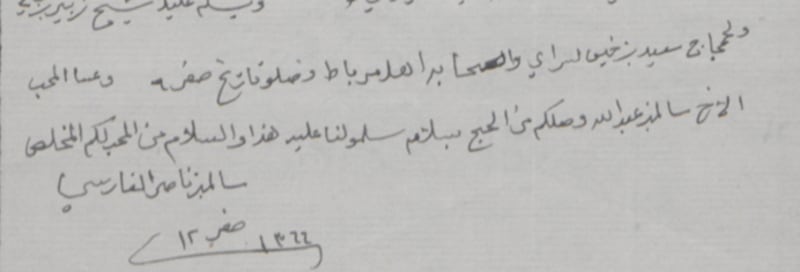 ويسلم عليك الشيخ
والحجاج سعيد بن خيق لسراي واصحابه اهل مرباط وصلو تاريخ صفر ٩ وعسا المحب
الاخ سالم بن عبدالله وصلكم من الحج بسلام سلمولنا عليه هذا والسلام من المحب لكم المخلص
سالم بن ناصر الفارسي
١٢ صفر ١٣٦٦